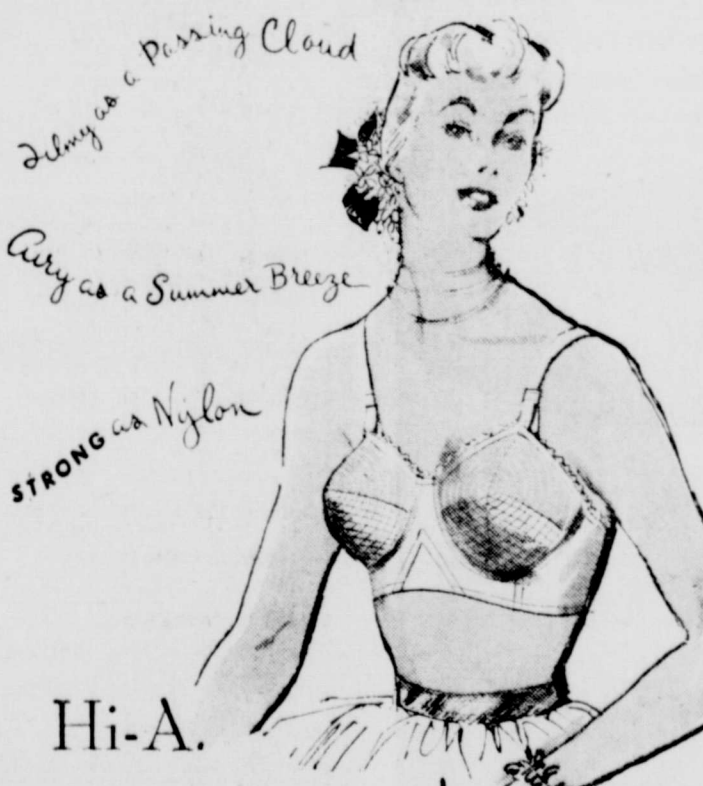 Filmy as a Passing Cloud
Airy as a Summer Breeze
STRONG as Nylon
Hi-A.